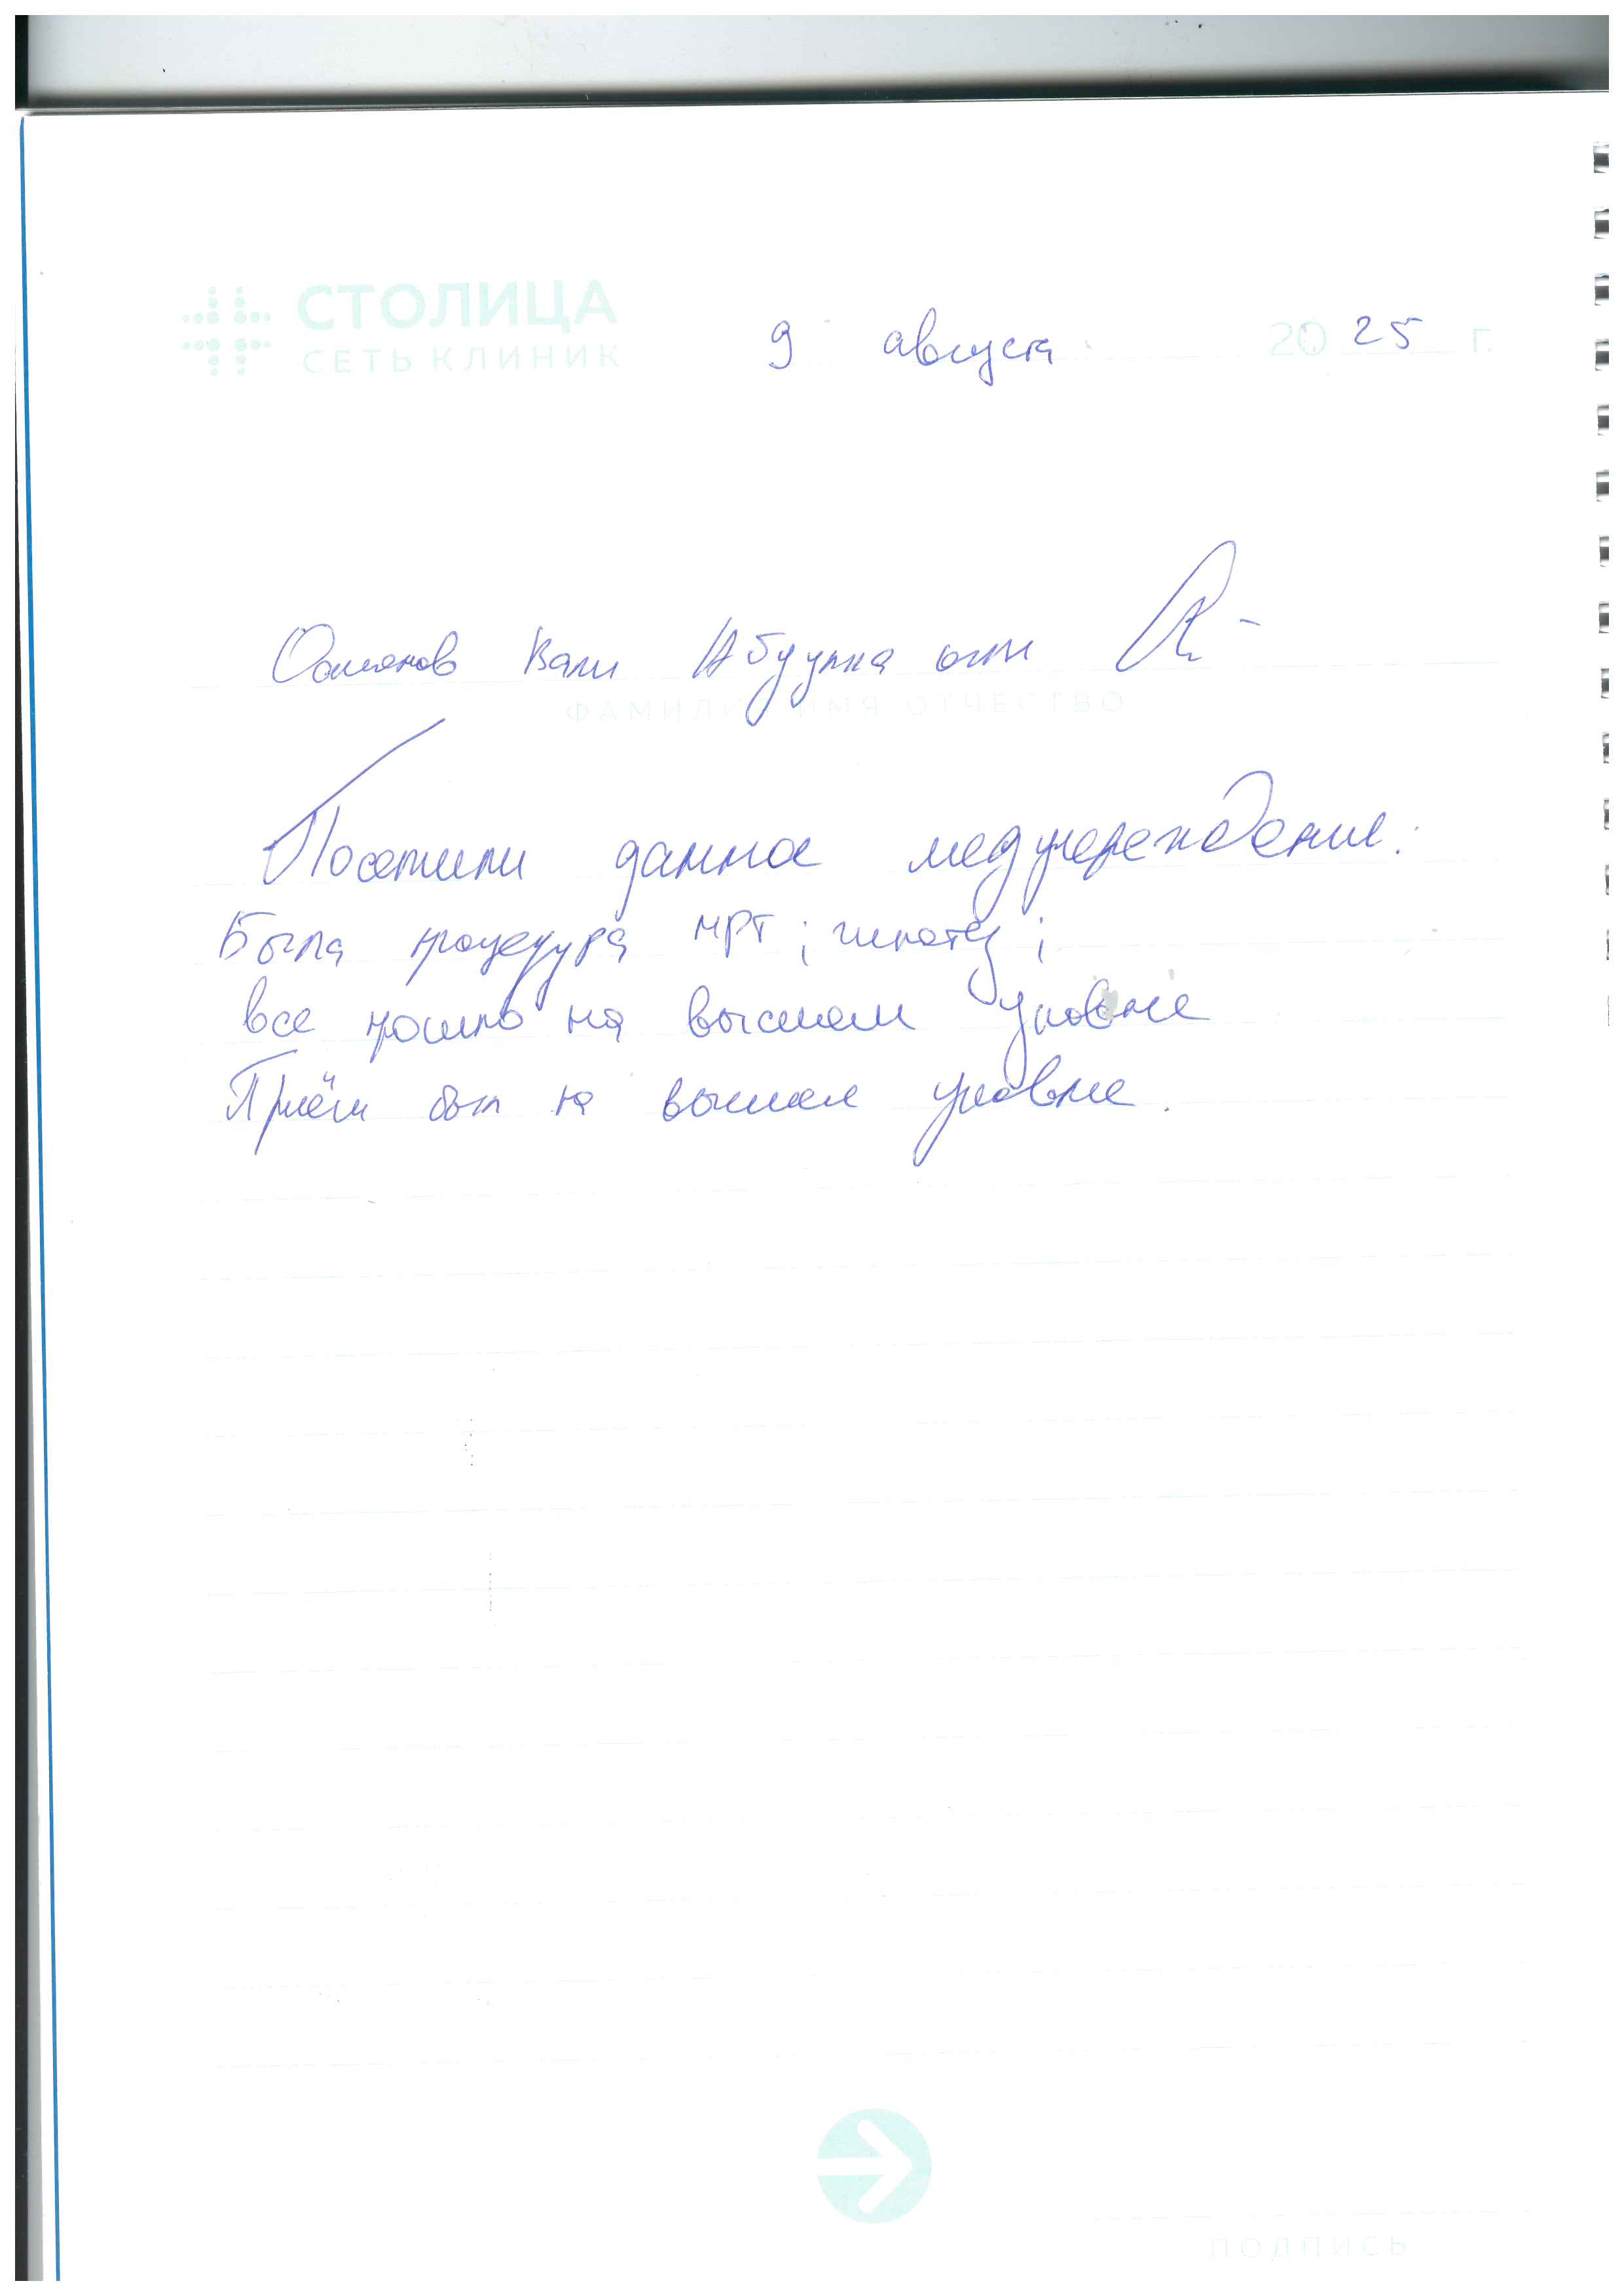 СТОЛИЦА
СЕТЬ КЛИНИК
9 августа 2025 г.
Османов Вали Абдулла оглы
ФАМИЛИЯ ИМЯ ОТЧЕСТВО
Посетили данное медучереждение.
Была процедура МРТ;
все прошло на высшем уровне
Приём был на высшем уровне.
ПОДПИСЬ